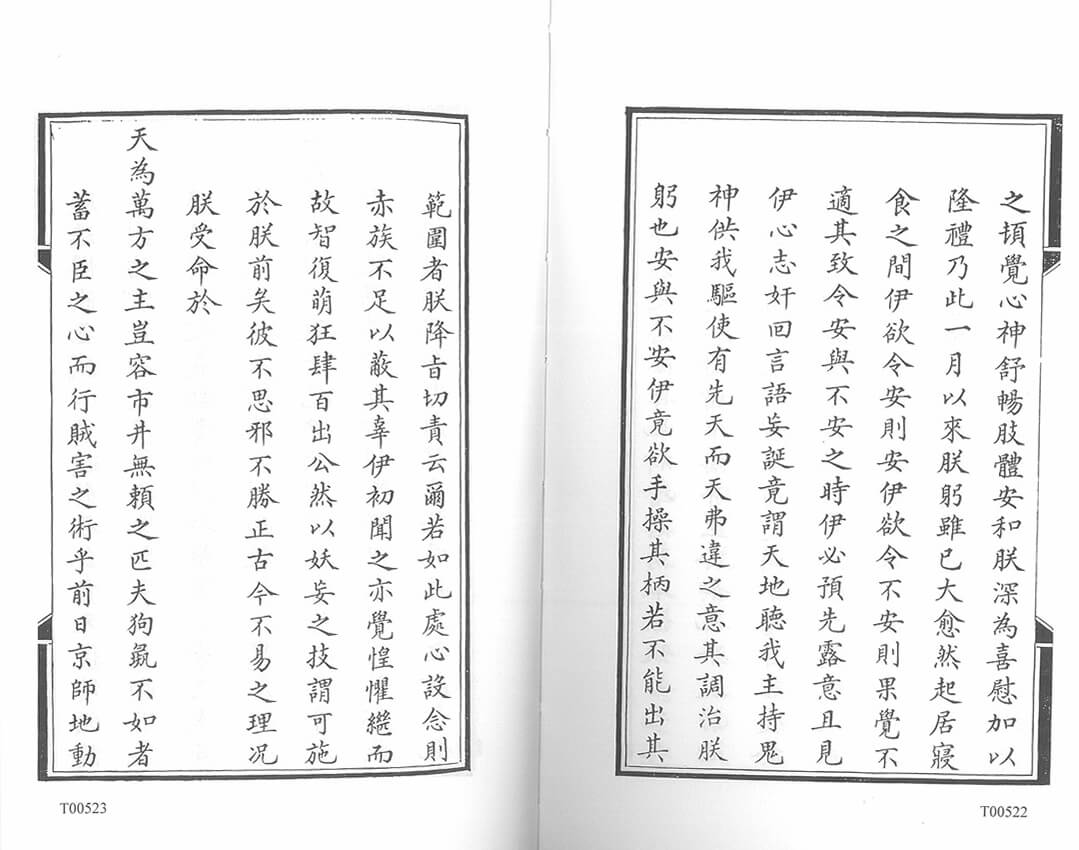 之頃覺心神舒暢肢體安和朕深為喜慰加以
隆禮乃此一月以來朕躬雖已大愈然起居寢
食之間伊欲令安則安伊欲令不安則果覺不
適其致令安與不安之時伊必預先露意且見
伊心志奸回言語妄誕竟謂天地聽我主持鬼
神供我驅使有先天而天弗違之意其調治朕
躬也安與不安伊竟欲手操其柄若不能出其
T00522
範圍者朕降旨切責云爾若如此處心設念則
赤族不足以蔽其辜伊初聞之亦覺惶懼繼而
故智復萌狂肆百出公然以妖妄之技謂可施
於朕前矣彼不思邪不勝正古今不易之理况
朕受命於
天為萬方之主豈容市井無賴之匹夫狗彘不如者
蓄不臣之心而行賊害之術乎前日京師地動
T00523